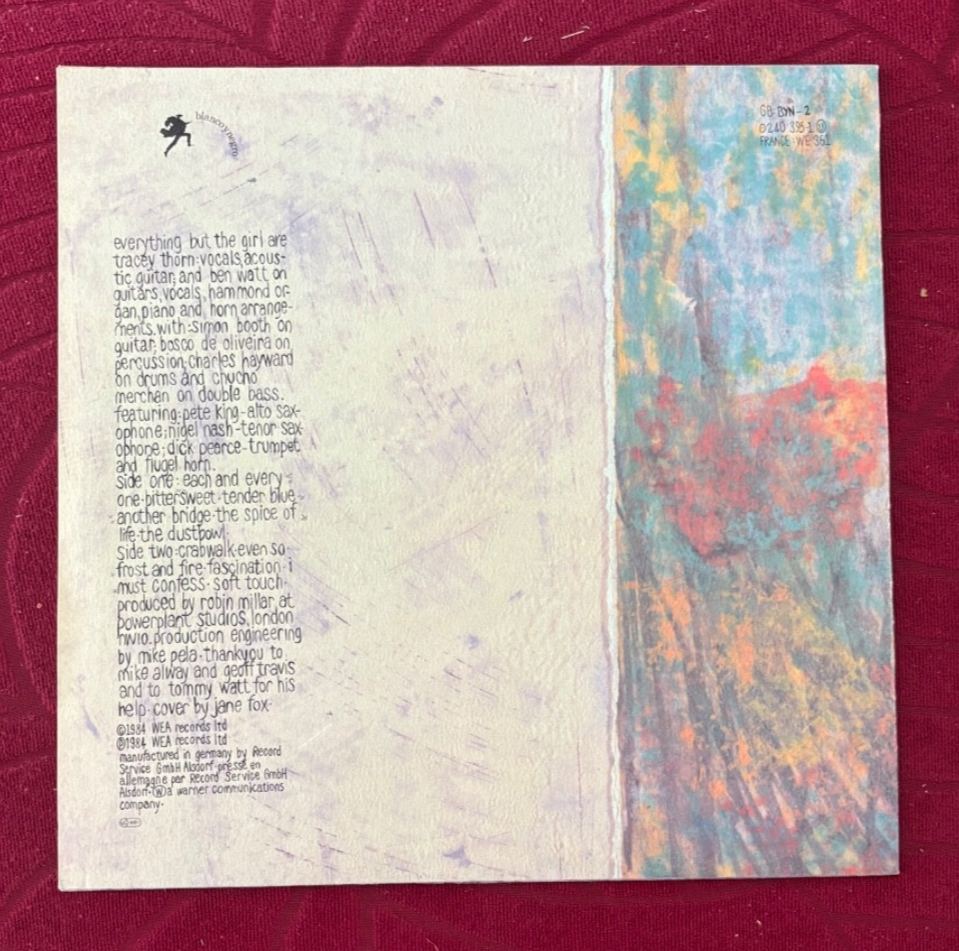 blancoynegro
GB BYN-2
0240 395-1
FRANCE: WE 361
everything but the girl are
tracey thorn: vocals, acous-
tic guitar; and ben watt on
guitars, vocals, hammond or-
gan, piano and horn arrange-
ments. with: simon booth on
guitar; bosco de oliveira on
percussion; charles hayward
on drums and chucho
merchan on double bass.
featuring: pete king - alto sax-
ophone; nigel nash - tenor sax-
ophone; dick pearce - trumpet
and flugel horn.
side one: each and every
one·bittersweet·tender blue·
another bridge·the spice of
life·the dustbowl
side two: crabwalk·even so·
frost and fire·fascination·i
must confess·soft touch·
produced by robin millar at
powerplant studios, london
nw10. production engineering
by mike pela·thankyou to
mike alway and geoff travis
and to tommy watt for his
help·cover by jane fox·
©1984 WEA records ltd
℗1984 WEA records ltd
manufactured in germany by Record
Service GmbH Alsdorf·pressé en
allemagne par Record Service GmbH
Alsdorf·Ⓦ a warner communications
company·